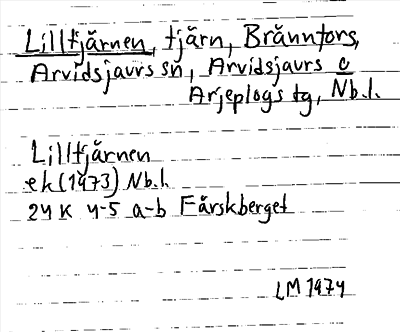 Lilltjärnen, tjärn, Brännfors,
Arvidsjaurs sn, Arvidsjaurs o
Arjeplogs tg, Nb.l.
Lilltjärnen
ek (1973) Nb.l.
24K 4-5 a-b Fårskberget
LM 1974